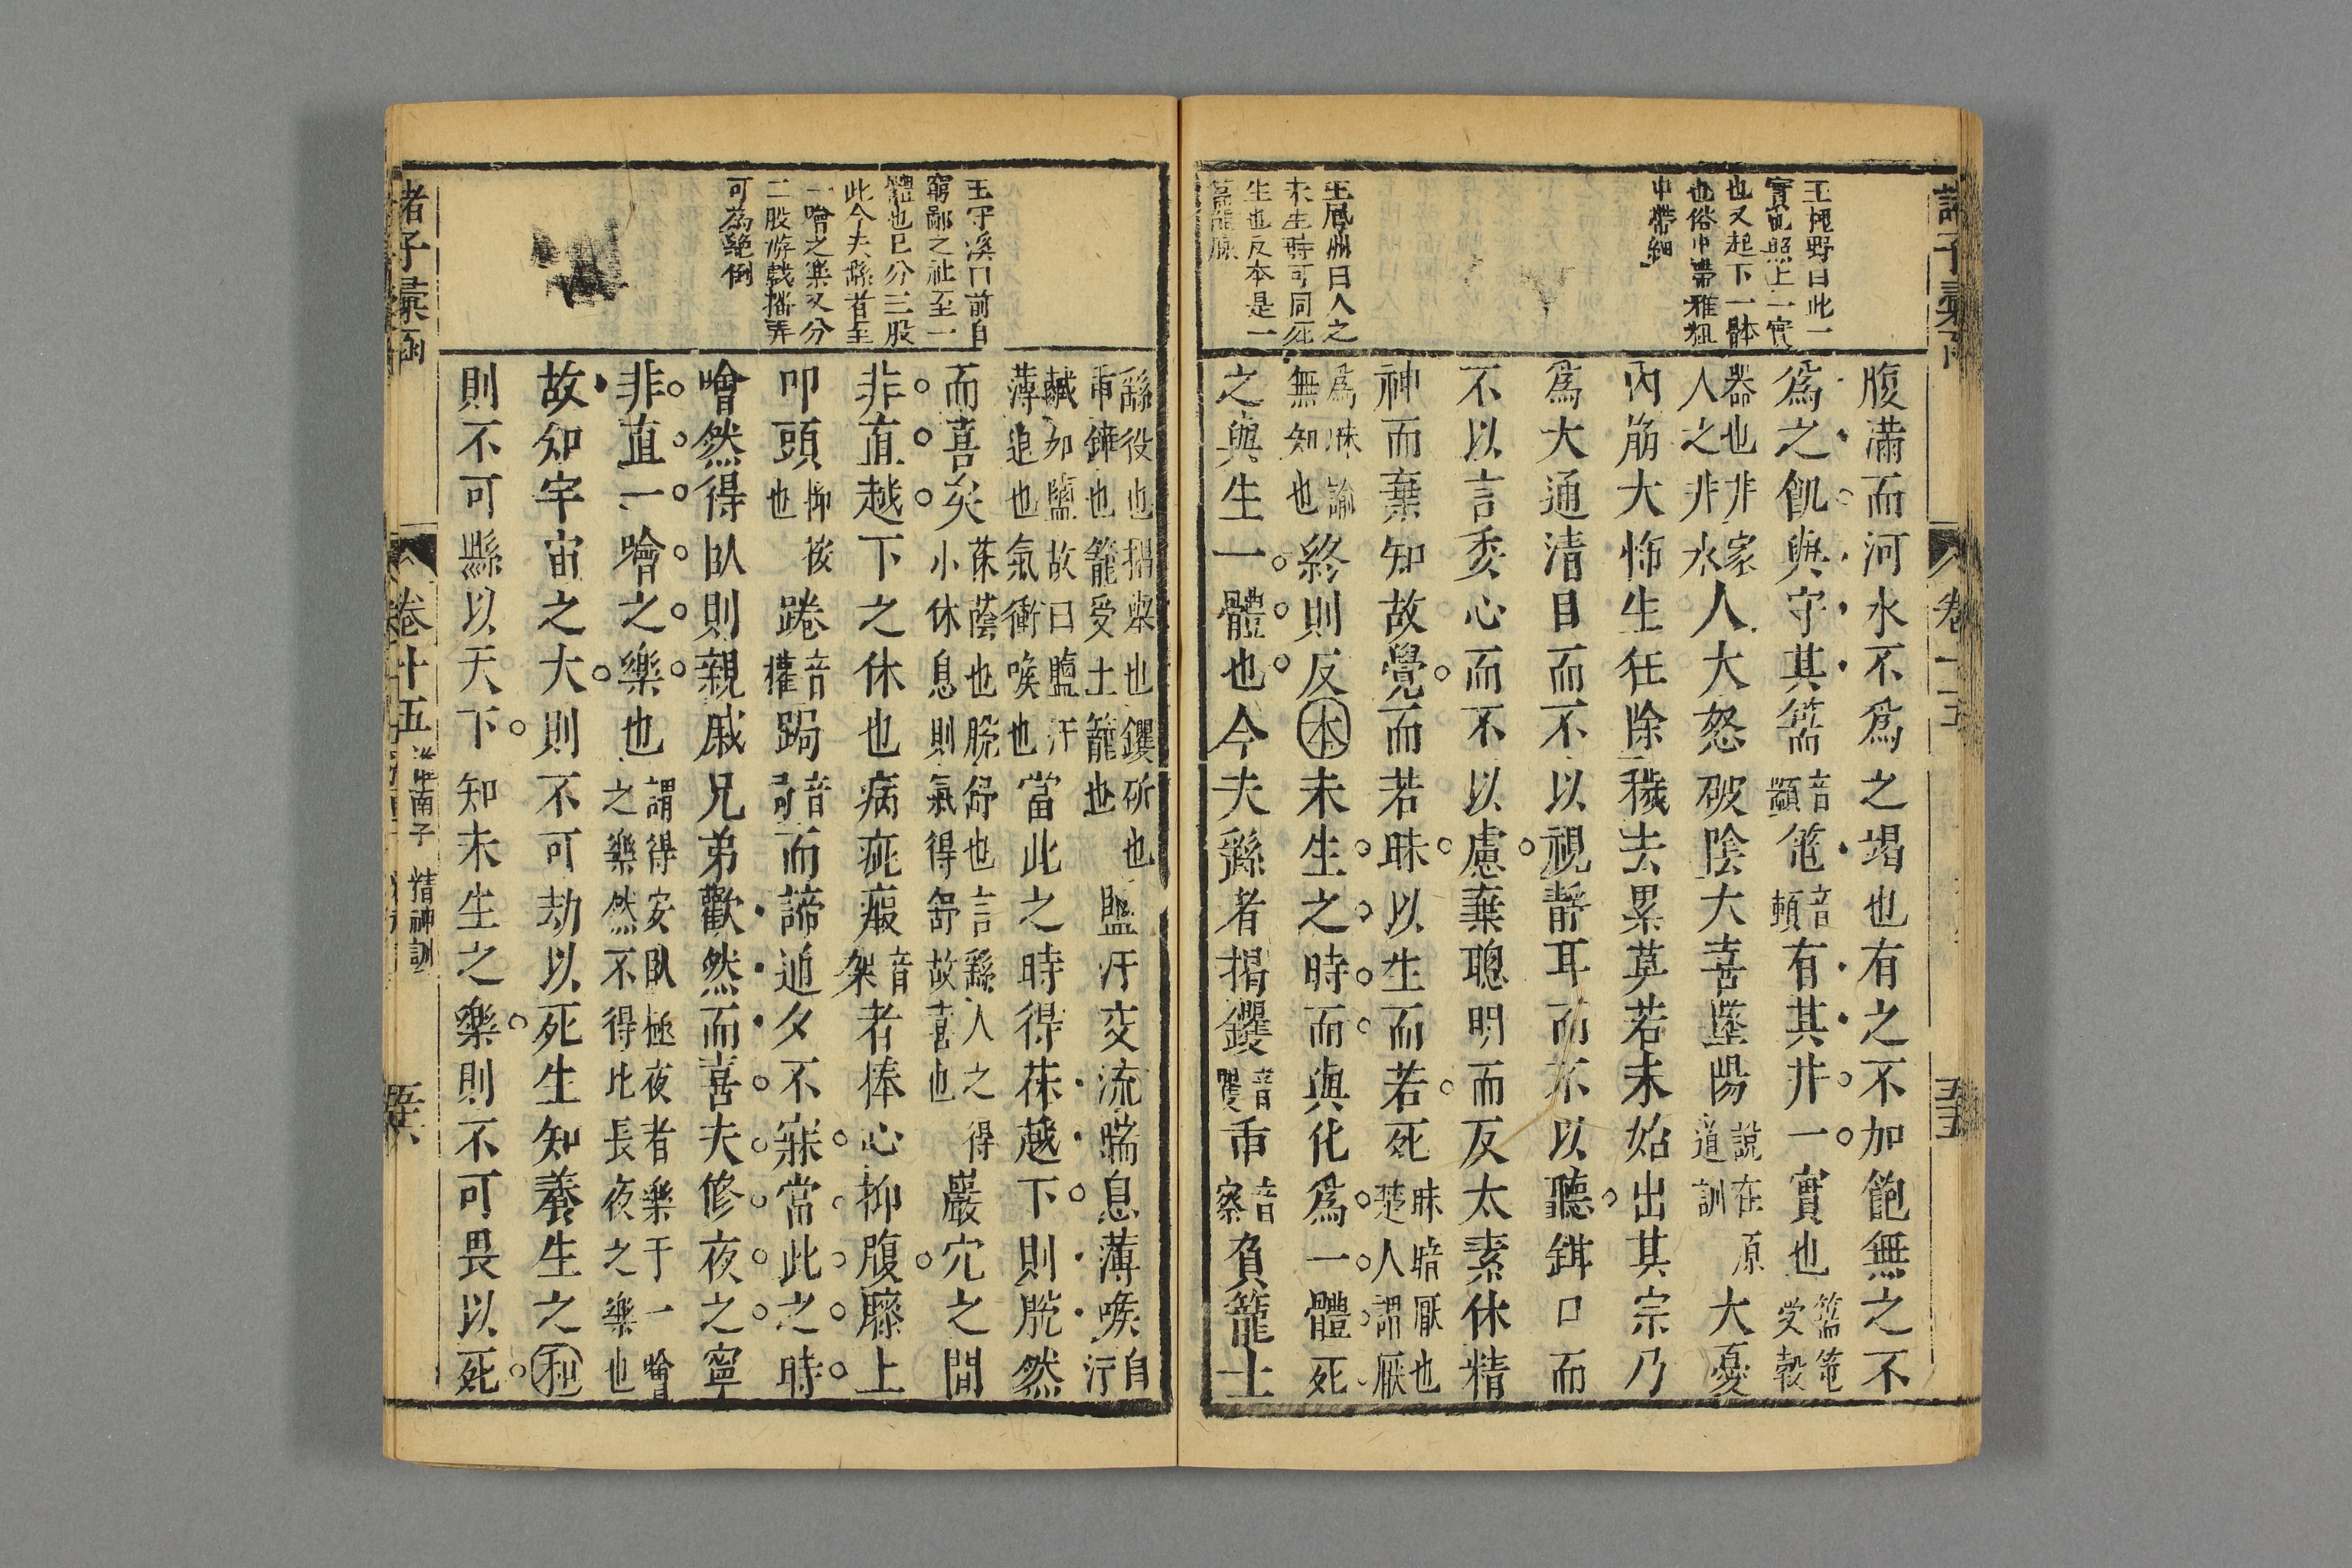 王鳳洲曰人之
未生時可同死
生也反本是一
王守溪曰前自
窮鄙之社至一
體也已分三股
此今夫繇者至
一噲之樂又分
二股游戲播弄
可為絕倒
腹滿而河水不爲之竭也有之不加飽無之不
爲之飢與守其篅音顓𥫱音頓有其井一實也篅𥫱受穀
器也非家人之井水人大怒破陰大喜墜陽說在原道訓大憂
內崩大怖生狂除穢去累莫若未始出其宗乃
爲大通清目而不以視靜耳而不以聽鉗口而
不以言委心而不以慮棄聰明而反太素休精
神而棄知故覺而若昧以生而若死昧暗厭也楚人謂厭
爲昧諭無知也終則反本未生之時而與化爲一體死
之與生一體也今夫繇者揭钁音矍臿音察負籠土
繇役也揭舉也钁斫也臿鏵也籠受土籠也鹽汗交流喘息薄喉自汗
鹹如鹽故曰鹽汗薄迫也氣衝喉也當此之時得茠越下則脫然
而喜矣茠蔭也脫舒也言繇人之得小休息則氣得舒故喜也巖穴之間
非直越下之休也病疵瘕音架者捧心抑腹膝上
叩頭抑按也踡音權跼音局而諦通夕不寐當此之時
噲然得臥則親戚兄弟歡然而喜夫修夜之寧
非直一噲之樂也謂得安臥極夜者樂于一噲之樂然不得比長夜之樂也
故知宇宙之大則不可劫以死生知養生之和
則不可縣以天下知未生之樂則不可畏以死
諸子彙函
卷十五
淮南子 精神訓